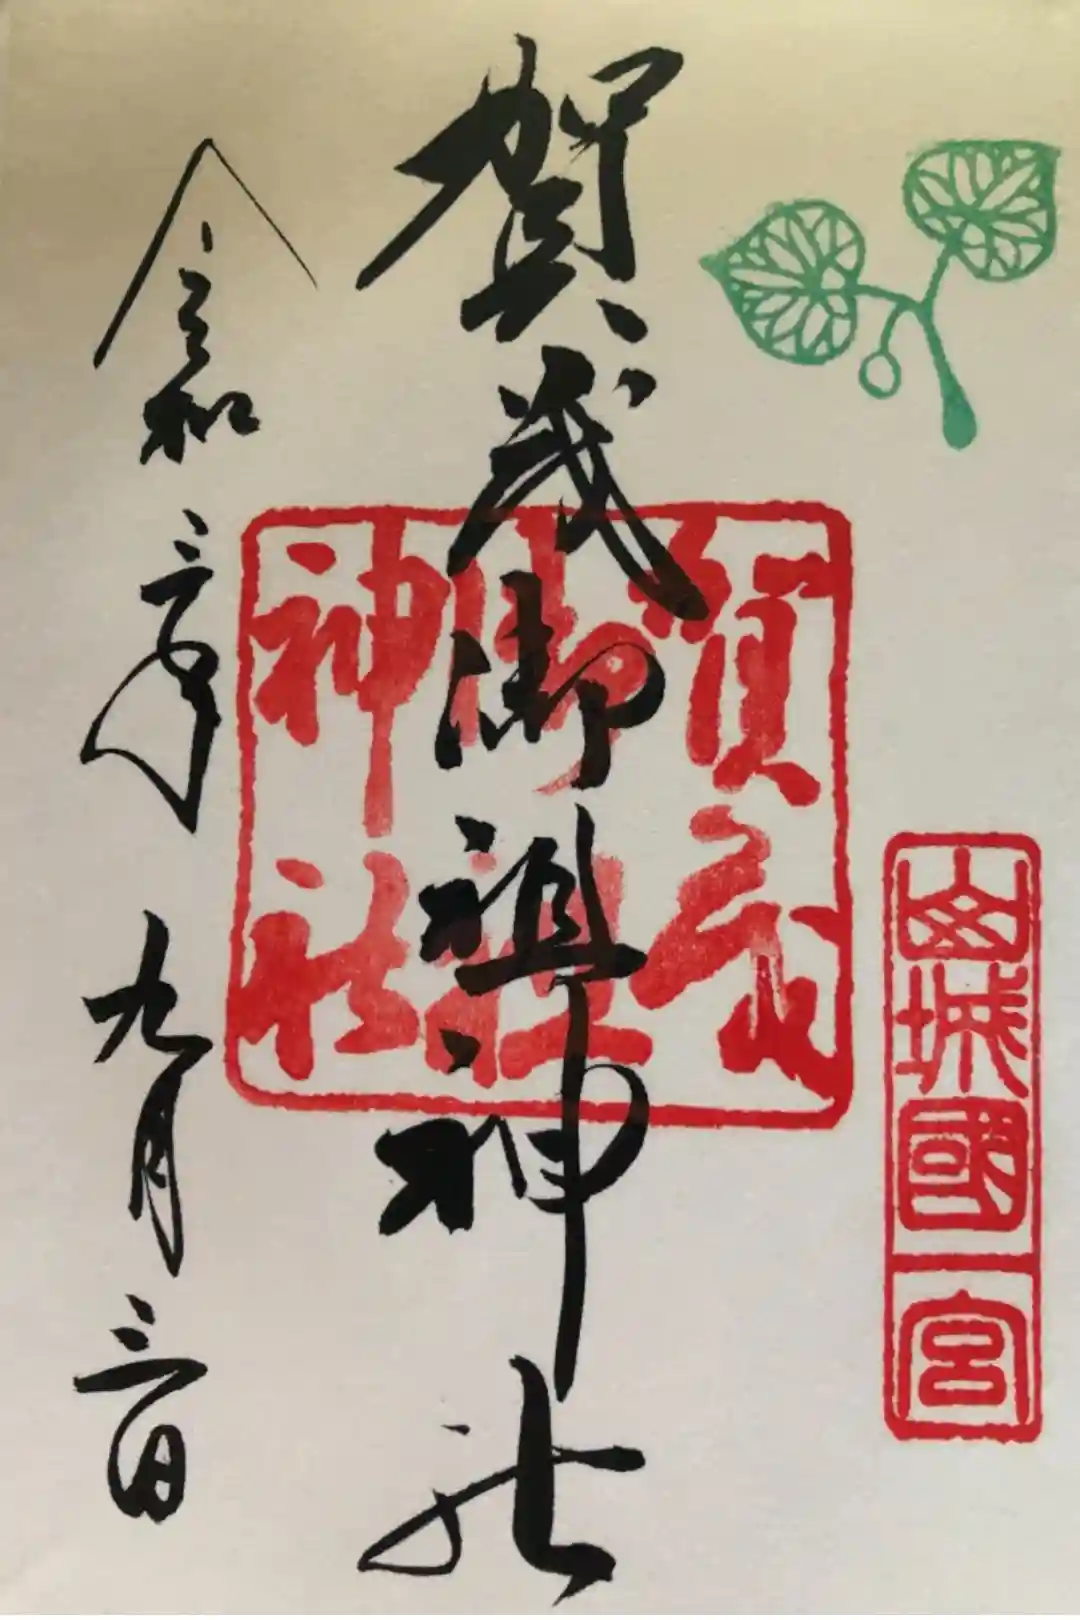 山城國一宮
賀茂御祖神社
賀茂御祖神社
令和三年九月三日